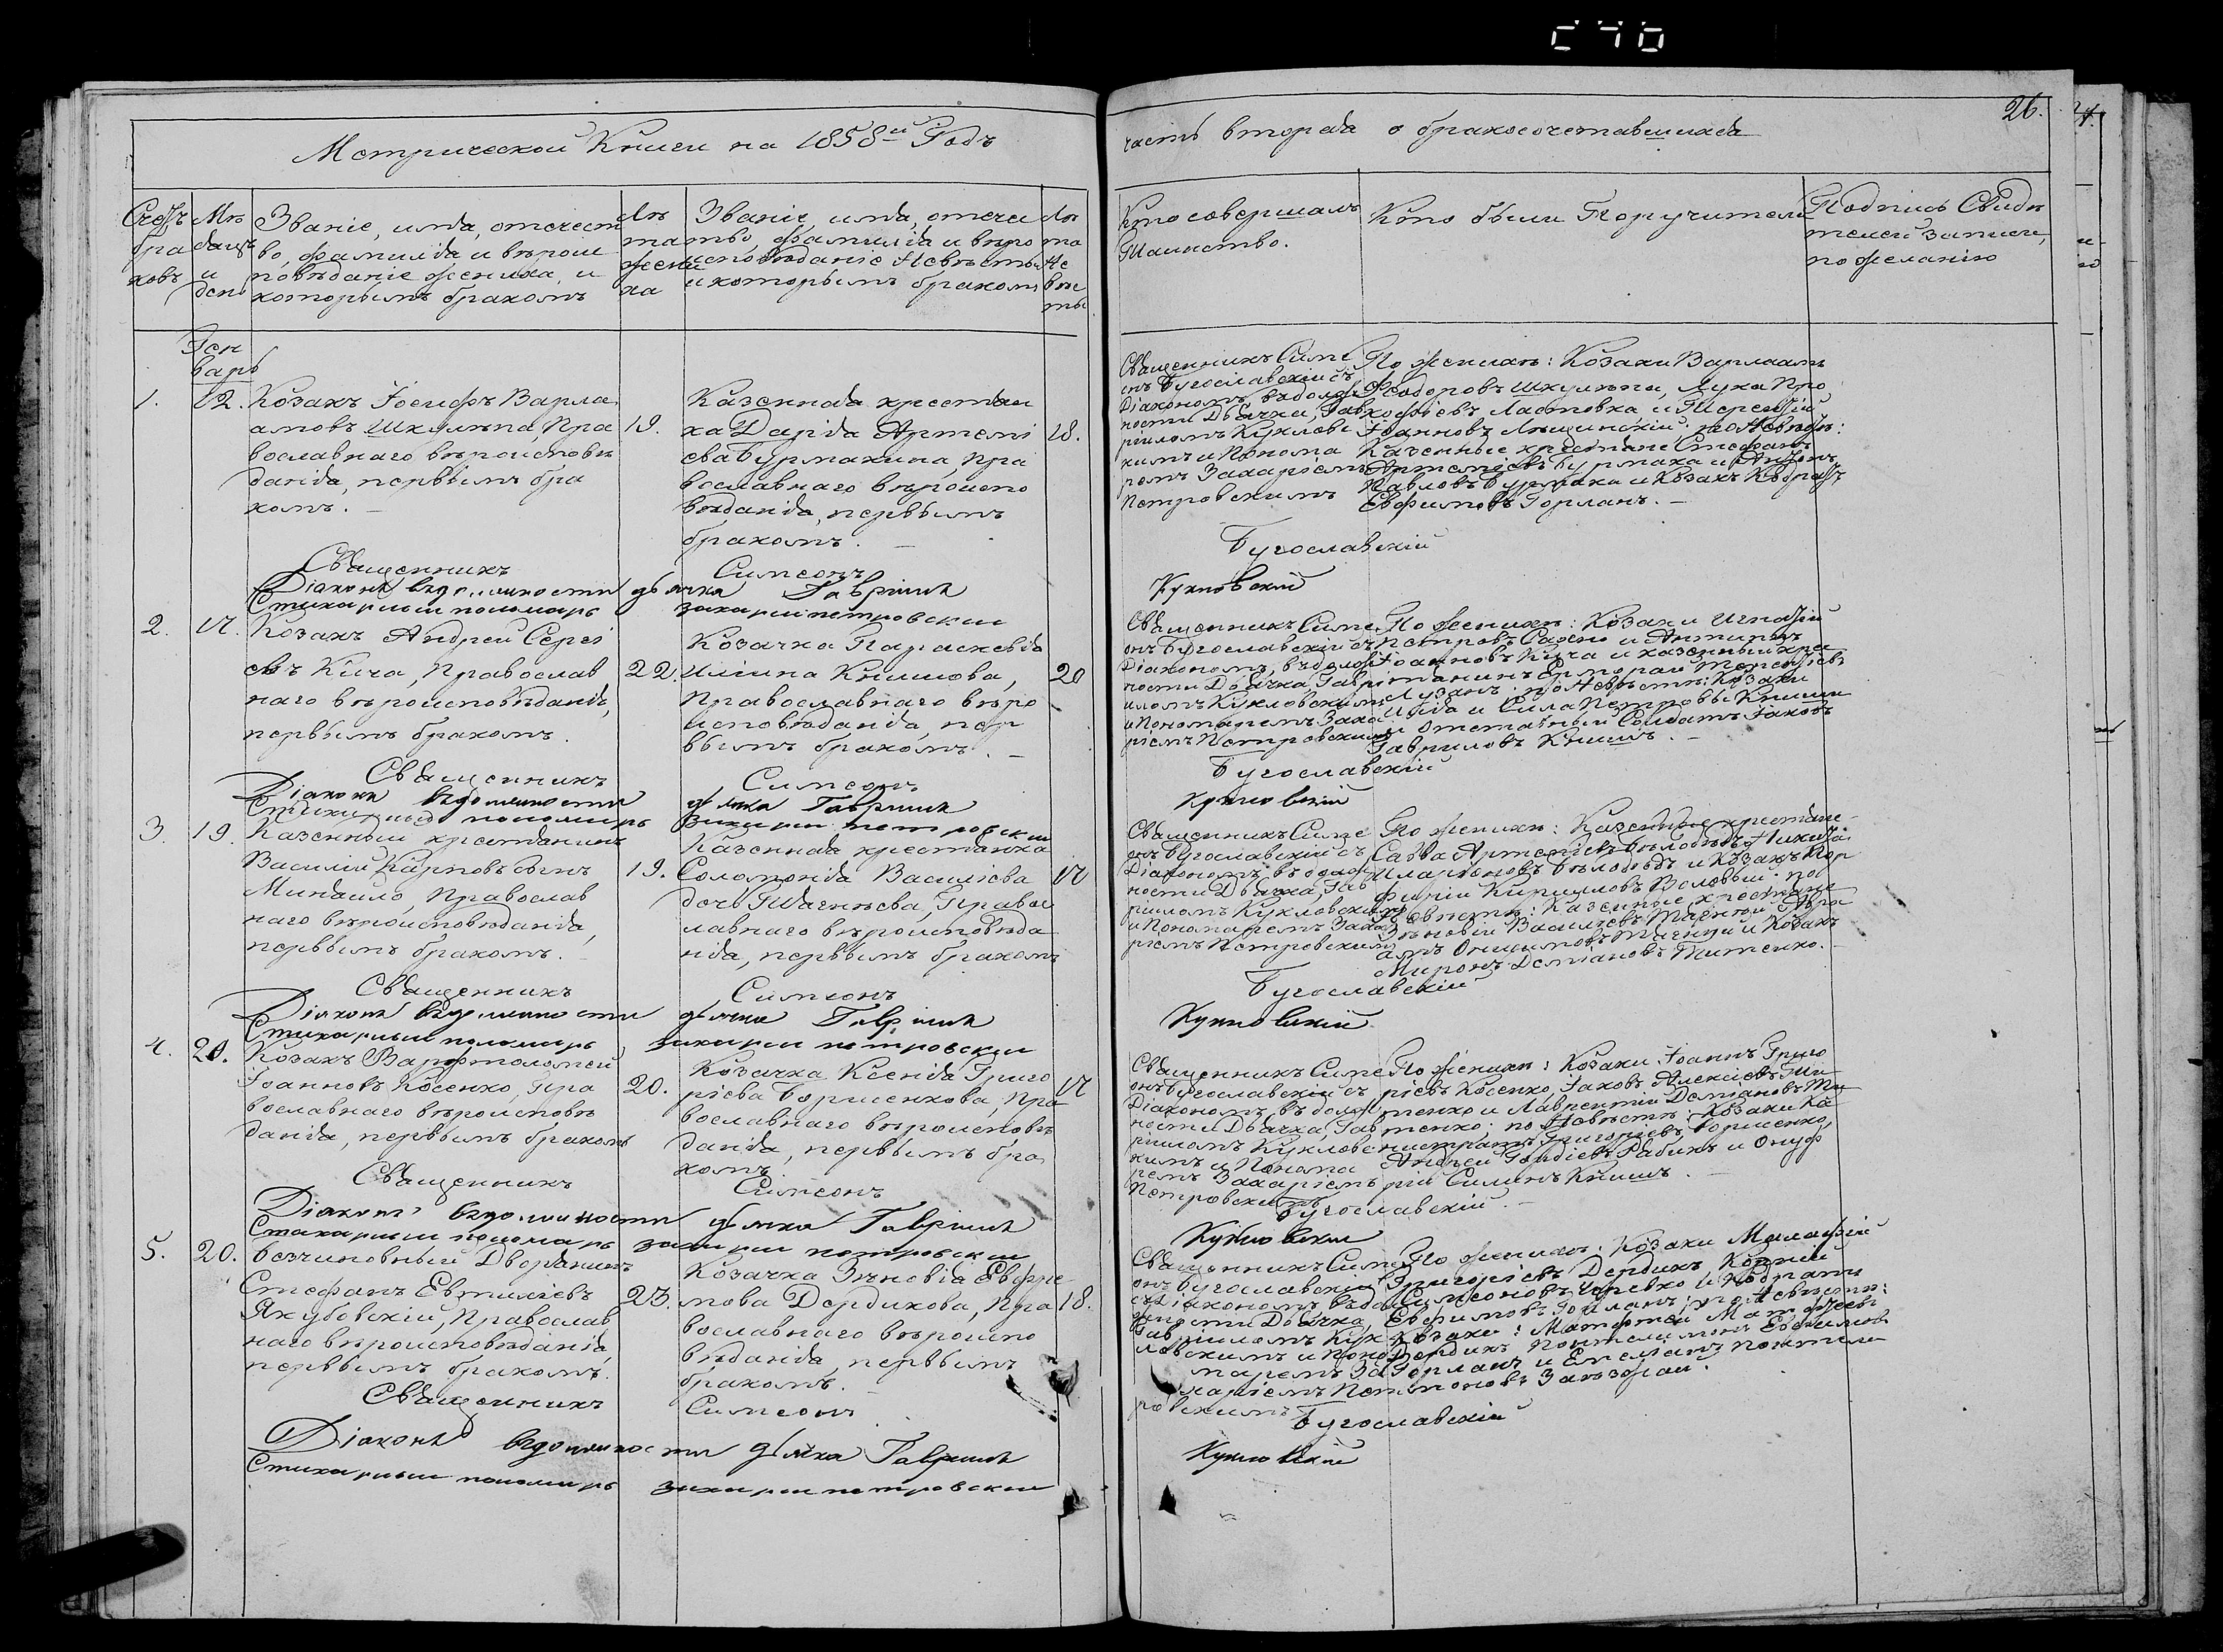 26.
Метрической Книги на 1858й Годъ
часть вторая о бракосочетавшихся
Счетъ бра ковъ
Мѣ сяцъ и день
Званіе, имя, отечест
во, фамилія и вѣроис
повѣданіе жениха, и
которымъ бракомъ
Лѣ та жени ха
Званіе, имя, отечес
тво, фамилія и вѣро
исповѣданіе Невѣсты
и которымъ бракомъ
Лѣ та Не вѣс ты
Кто совершалъ
Таинство.
Кто были Поручители
Подпись Свидѣ
телей записи,
по желанію
Ген
варь
1.
12.
Козакъ Іосифъ Варла
амовъ Шкулѣпа, Пра
вославнаго вѣроисповѣ
данія, первымъ бра
комъ.
19.
Казенная крестьян
ка Дарія Артемі
ева Бурмакина, Пра
вославнаго вѣроиспо
вѣданія, первымъ
бракомъ.
18.
Священникъ Симе
онъ Бугославскій съ
Діакономъ въ долж
ности Дьячка, Гав
ріиломъ Кукловс
кимъ и Понома
ремъ Захаріемъ
Петровскимъ
По женихѣ: Козаки Варлаамъ
Феодоровъ Шкулѣпа, Лука Про
кофіевъ Ластовка и Терентій
Іоанновъ Лѣщинскій; по Невѣстѣ:
Казенные крестьяне Стефанъ
Артеміевъ Бурмака и Антонъ
Павловъ Бурмака и Козакъ Кодратъ
Евфимовъ Горланъ.
Священникъ Симеонъ Бугославскій
Діаконъ въ должности дьячка Гавріилъ Кукловскій
Стихарный пономарь Захарій Петровскій
2.
17.
Козакъ Андрей Сергі
евъ Кича, Православ
наго вѣроисповѣданія,
первымъ бракомъ.
22
Козачка Параскевія
Илиина Книшова,
Православнаго вѣро
исповѣданія, пер
вымъ бракомъ.
20
Священникъ Симе
онъ Бугославскій съ
Діакономъ, въ долж
ности Дьячка Гаврі
иломъ Кукловскимъ
и Пономаремъ Заха
ріемъ Петровскимъ
По женихѣ: Козаки Игнатій
Петровъ Сажно и Антипъ
Іоанновъ Кича и казенный крес
тьянинъ Терентіевъ
Лузанъ; по Невѣстѣ: Козаки
Илія и Сила Петровы Книши
и отставный Солдатъ Іаковъ
Гавриловъ Книшъ.
Священникъ Симеонъ Бугославскій
Діаконъ въ должности дьячка Гавріилъ Кукловскій
Стихарный пономарь Захарій Петровскій
3.
19.
Казенный крестьянинъ
Василій Карповъ сынъ
Миняйло, Православ
наго вѣроисповѣданія,
первымъ бракомъ.
19.
Казенная крестьянка
Соломонія Васильева
дочь Тягнѣева, Правос
лавнаго вѣроисповѣда
нія, первымъ бракомъ
17
Священникъ Симе
онъ Бугославскій съ
Діакономъ въ долж
ности Дьячка, Гав
ріиломъ Кукловскимъ
и Пономаремъ Заха
ріемъ Петровскимъ
По женихѣ: Казенные крестьяне
Савва Артеміевъ Бѣлоѣдъ, Никита
Иларіоновъ Бѣлоѣдъ и Козакъ Пор
фирій Кирилловъ Воловый; по
Невѣстѣ: Казенные крестьяне
Зѣновій Васильевъ Тягній Авра
амъ Онисимовъ Тягній и Козакъ
Миронъ Деміановъ Титенко.
Священникъ Симеонъ Бугославскій
Діаконъ въ должности дьячка Гавріилъ Кукловскій
Стихарный пономарь Захарій Петровскій
4.
20.
Козакъ Варфоломей
Іоанновъ Косенко, Пра
вославнаго вѣроисповѣ
данія, первымъ бракомъ
20.
Козачка Ксенія Григо
ріева Борисенкова, Пра
вославнаго вѣроисповѣ
данія, первымъ бра
комъ.
17
Священникъ Симе
онъ Бугославскій съ
Діакономъ, въ долж
ности Дьячка, Гав
ріиломъ Кукловс
кимъ и Понома
ремъ Захаріемъ
Петровскимъ
По женихѣ: Козаки Іоаннъ Григо
ріевъ Косенко, Іаковъ Алексіевъ Ти
тенко и Лаврентій Деміановъ Ти
тенко; по Невѣстѣ: Козаки Ка
листратъ Григоріевъ Борисенко,
Андрей Гордіевъ Рябикъ и Онуф
рій Силинъ Книшъ.
Священникъ Симеонъ Бугославскій.
Діаконъ въ должности дьячка Гавріилъ Кукловскій
Стихарный пономарь Захарій Петровскій
5.
20.
Безчиновный Дворянинъ
Стефанъ Евтихіевъ
Якубовскій, Православ
наго вѣроисповѣданія,
первымъ бракомъ.
23.
Козачка Зѣновія Евфре
мова Дердикова, Пра
вославнаго вѣроиспо
вѣданія, первымъ
бракомъ.
18.
Священникъ Симе
онъ Бугославскій
съ Діакономъ въ долж
ности Дьячка,
Гавріиломъ Кук
ловскимъ и Поно
маремъ За
харіемъ Пет
ровскимъ
По женихѣ: Козаки Малафій
Григоріевъ Дердикъ, Корній
Симеоновъ и Кодратъ
Евфимовъ Горланъ; по Невѣстѣ:
Козаки: Матфей Матфѣевъ
Дердикъ Пантелимонъ Евфимовъ
Горланъ и Емеліанъ Пантели
моновъ
Священникъ Симеонъ Бугославскій
Діаконъ въ должности дьячка Гавріилъ Кукловскій
Стихарный пономарь Захарій Петровскій